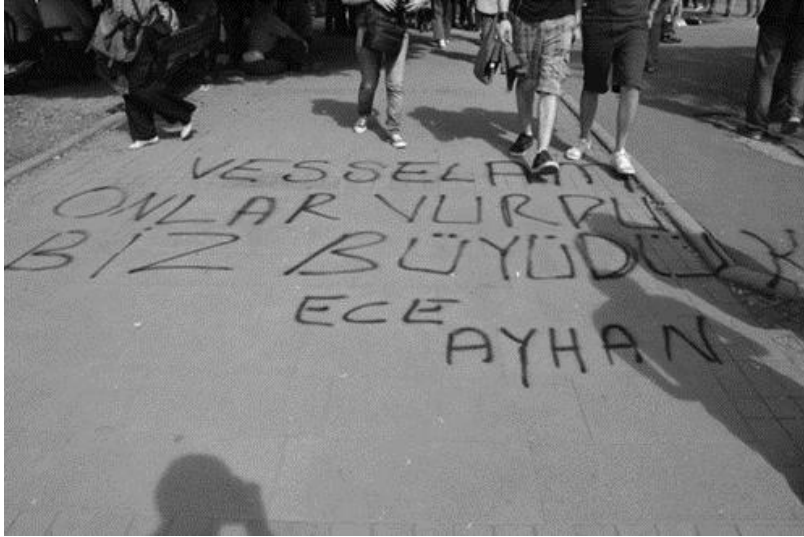 VESSELAM
ONLAR VURDU
BİZ BÜYÜDÜK
ECE
AYHAN